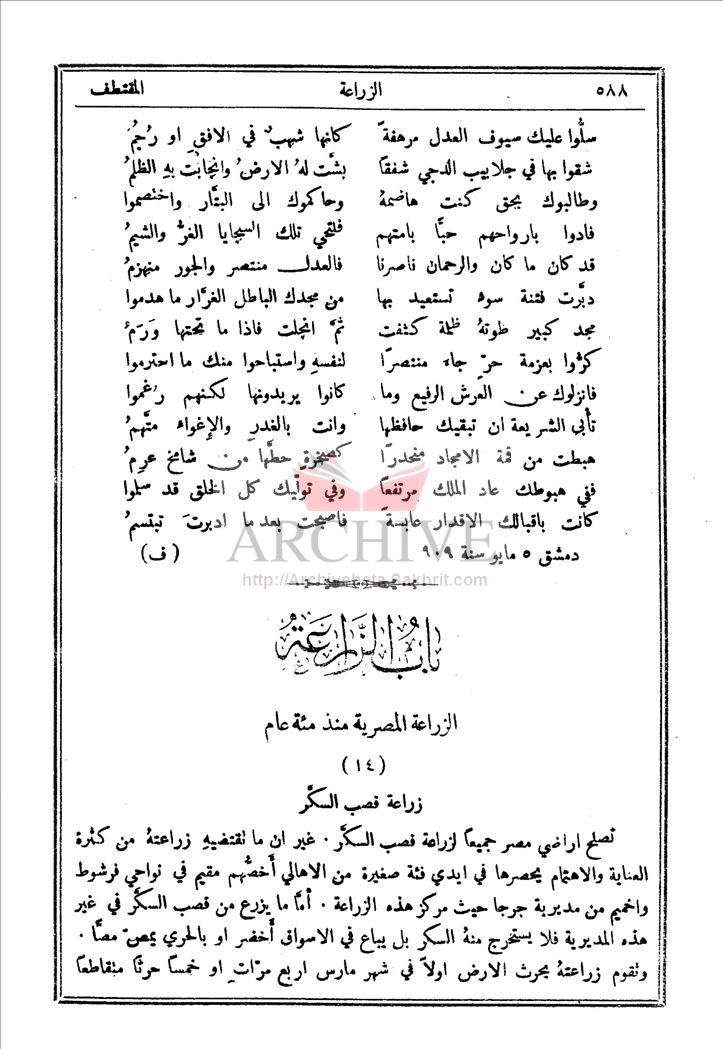 ٥٨٨ الزراعة المقتطف
سلُّوا عليك سيوف العدل مرهفةً كأنها شهبٌ في الافق او رُجُمُ
شقوا بها في جلابيب الدجي شفقًا بشَّت لهُ الارضُ وانجابت بهِ الظلمُ
وطالبوك بحق كنت هاضمهُ وحاكموك الى البتَّار واختصموا
فادوا بارواحهم حبًّا بامتهم فلتحي تلك السجايا الغرُّ والشيمُ
قد كان ما كان والرحمان ناصرنا فالعدل منتصر والجور منهزمُ
دبَّرت فتنة سوء تستعيد بها من مجدك الباطل الغرَّار ما هدموا
مجد كبير طوتهُ ظلمة كثفت ثمَّ انجلت فاذا ما تحتها وَرَمُ
كرُّوا بعزمة حرٍّ جاء منتصرًا لنفسهِ واستباحوا منك ما احترموا
فانزلوك عن العرش الرفيع وما كانوا يريدونها لكنهم رغموا
تأبى الشريعة ان تبقيك حافظها وانت بالغدرِ والإغواء متَّهمُ
هبطت من قمة الامجاد منحدرًا كصخرةٍ حطَّها من شامخ عرِمُ
ففي هبوطك عاد الملك مرتفعًا وفي تولّيك كل الخلق قد سلموا
كانت باقبالك الاقدار عابسةً فاصبحت بعد ما ادبرتَ تبتسمُ
دمشق ٥ مايو سنة ٩٠٩ (ف)
ARCHIVE
http://Archivebeta.Sakhrit.com
باب الزراعة
الزراعة المصرية منذ مئة عام
(١٤)
زراعة قصب السكَّر
تصلح اراضي مصر جميعًا لزراعة قصب السكَّر . غير ان ما تقتضيهِ زراعتهُ من كثرة
العناية والاهتمام يحصرها في ايدي فئة صغيرة من الاهالي أخصُّهم مقيم في نواحي فرشوط
واخميم من مديرية جرجا حيث مركز هذه الزراعة . أمَّا ما يزرع من قصب السكَّر في غير
هذه المديرية فلا يستخرج منهُ السكر بل يباع في الاسواق أخضر او بالحري يمصّ مصًّا .
وتقوم زراعتهُ بحرث الارض اولاً في شهر مارس اربع مرَّاتٍ او خمسًا حرثًا متقاطعًا